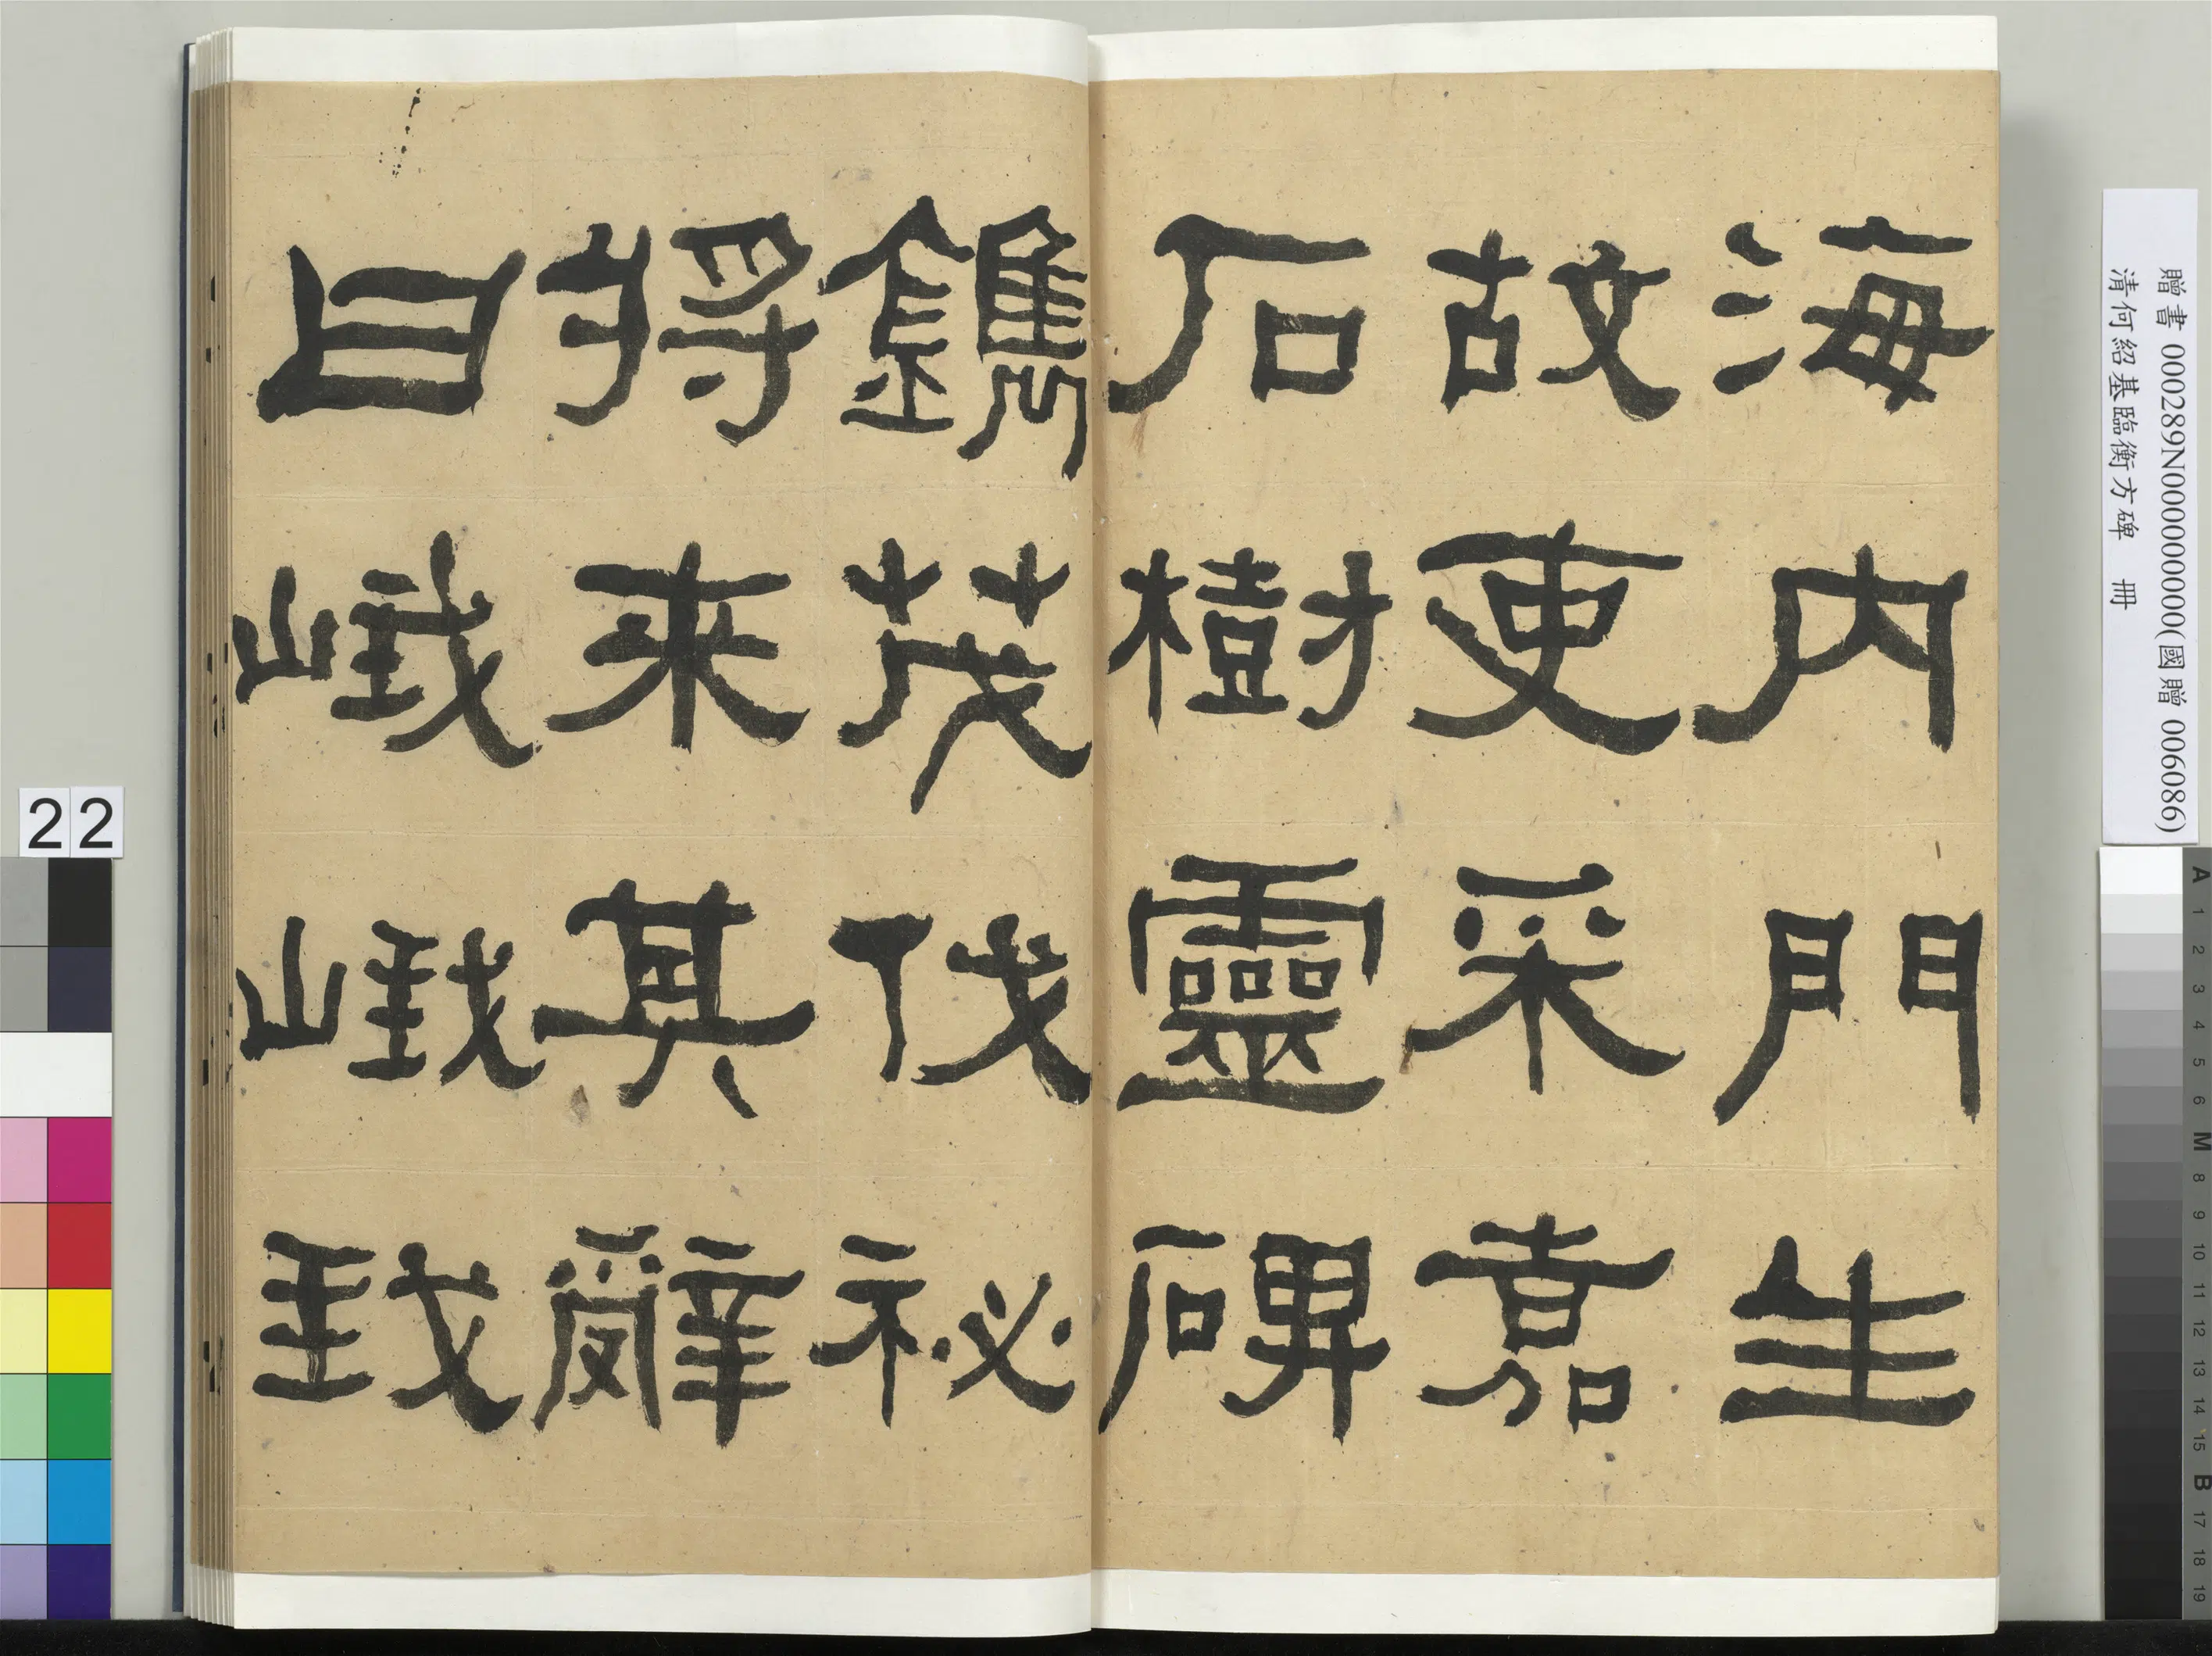 海內門生
故吏采嘉
石樹靈碑
鐫茂伐祕
將来其辭
曰峨峨我
贈書 000289N000000000(國贈 006086)
清何紹基臨衡方碑 冊
22
A 1 2 3 4 5 6 M 8 9 10 11 12 13 14 15 B 17 18 19